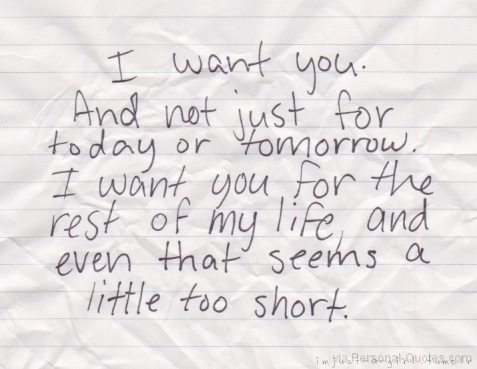 I want you.
And not just for
today or tomorrow.
I want you for the
rest of my life, and
even that seems a
little too short.
via PersonalQuotes.com